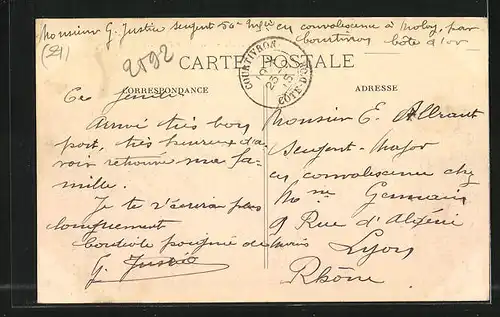 Monsieur G. Justice sergent 54e Inf en convalescence à Moloy, par
(21) Courtivron Côte d'or
2592
CARTE POSTALE
COURTIVRON
CÔTE-D'OR
CORRESPONDANCE
ADRESSE
Ce Jeudi
Arrivé très bon
port, très heureux d'a-
voir retrouvé ma fa-
mille.
Je te écrirai plus
longuement
Cordiale poignée de mains
G. Justice
Monsieur E. Allraut
Sergent-Major
en convalescence chez
Mme Germain
9 Rue d'Algérie
Lyon
Rhône